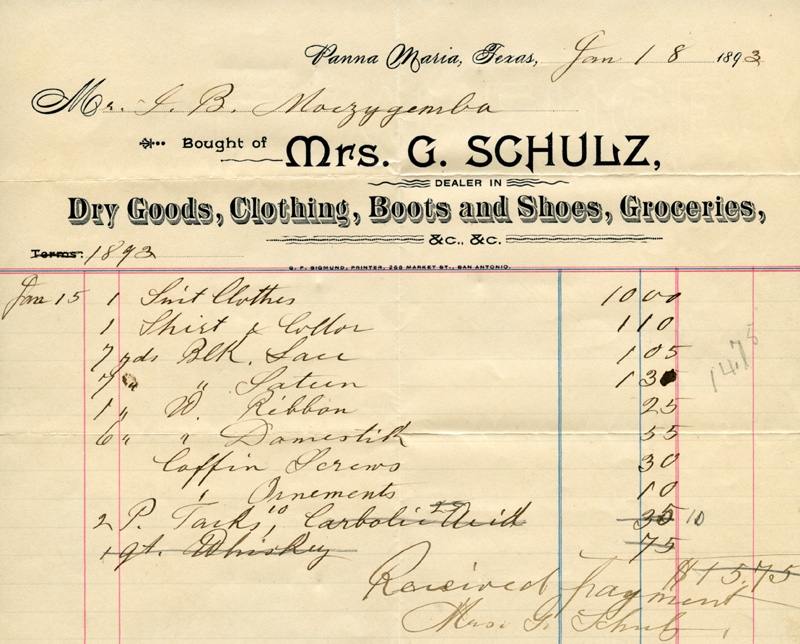 Panna Maria, Texas, Jan 18 1893
Mr. J. B. Moczygemba
Bought of Mrs. G. SCHULZ,
DEALER IN
Dry Goods, Clothing, Boots and Shoes, Groceries,
&c., &c.
Terms: 1893
G. F. SIGMUND, PRINTER, 258 MARKET ST., SAN ANTONIO.
Jan 15 1 Suit Clothes 10 00
1 Shirt & Collor 1 10
7 yds Blk. Lace 1 05
7 " Sateen 1 30
1 " W. Ribbon 25
6 " " Domestik 55
Coffin Screws 30
" Ornements 10
2 P. Tacks, 10 Carbolic Acid 25 35 10
1 qt. Whiskey 75
14.75
$15.75
Received payment
Mrs. G. Schulz